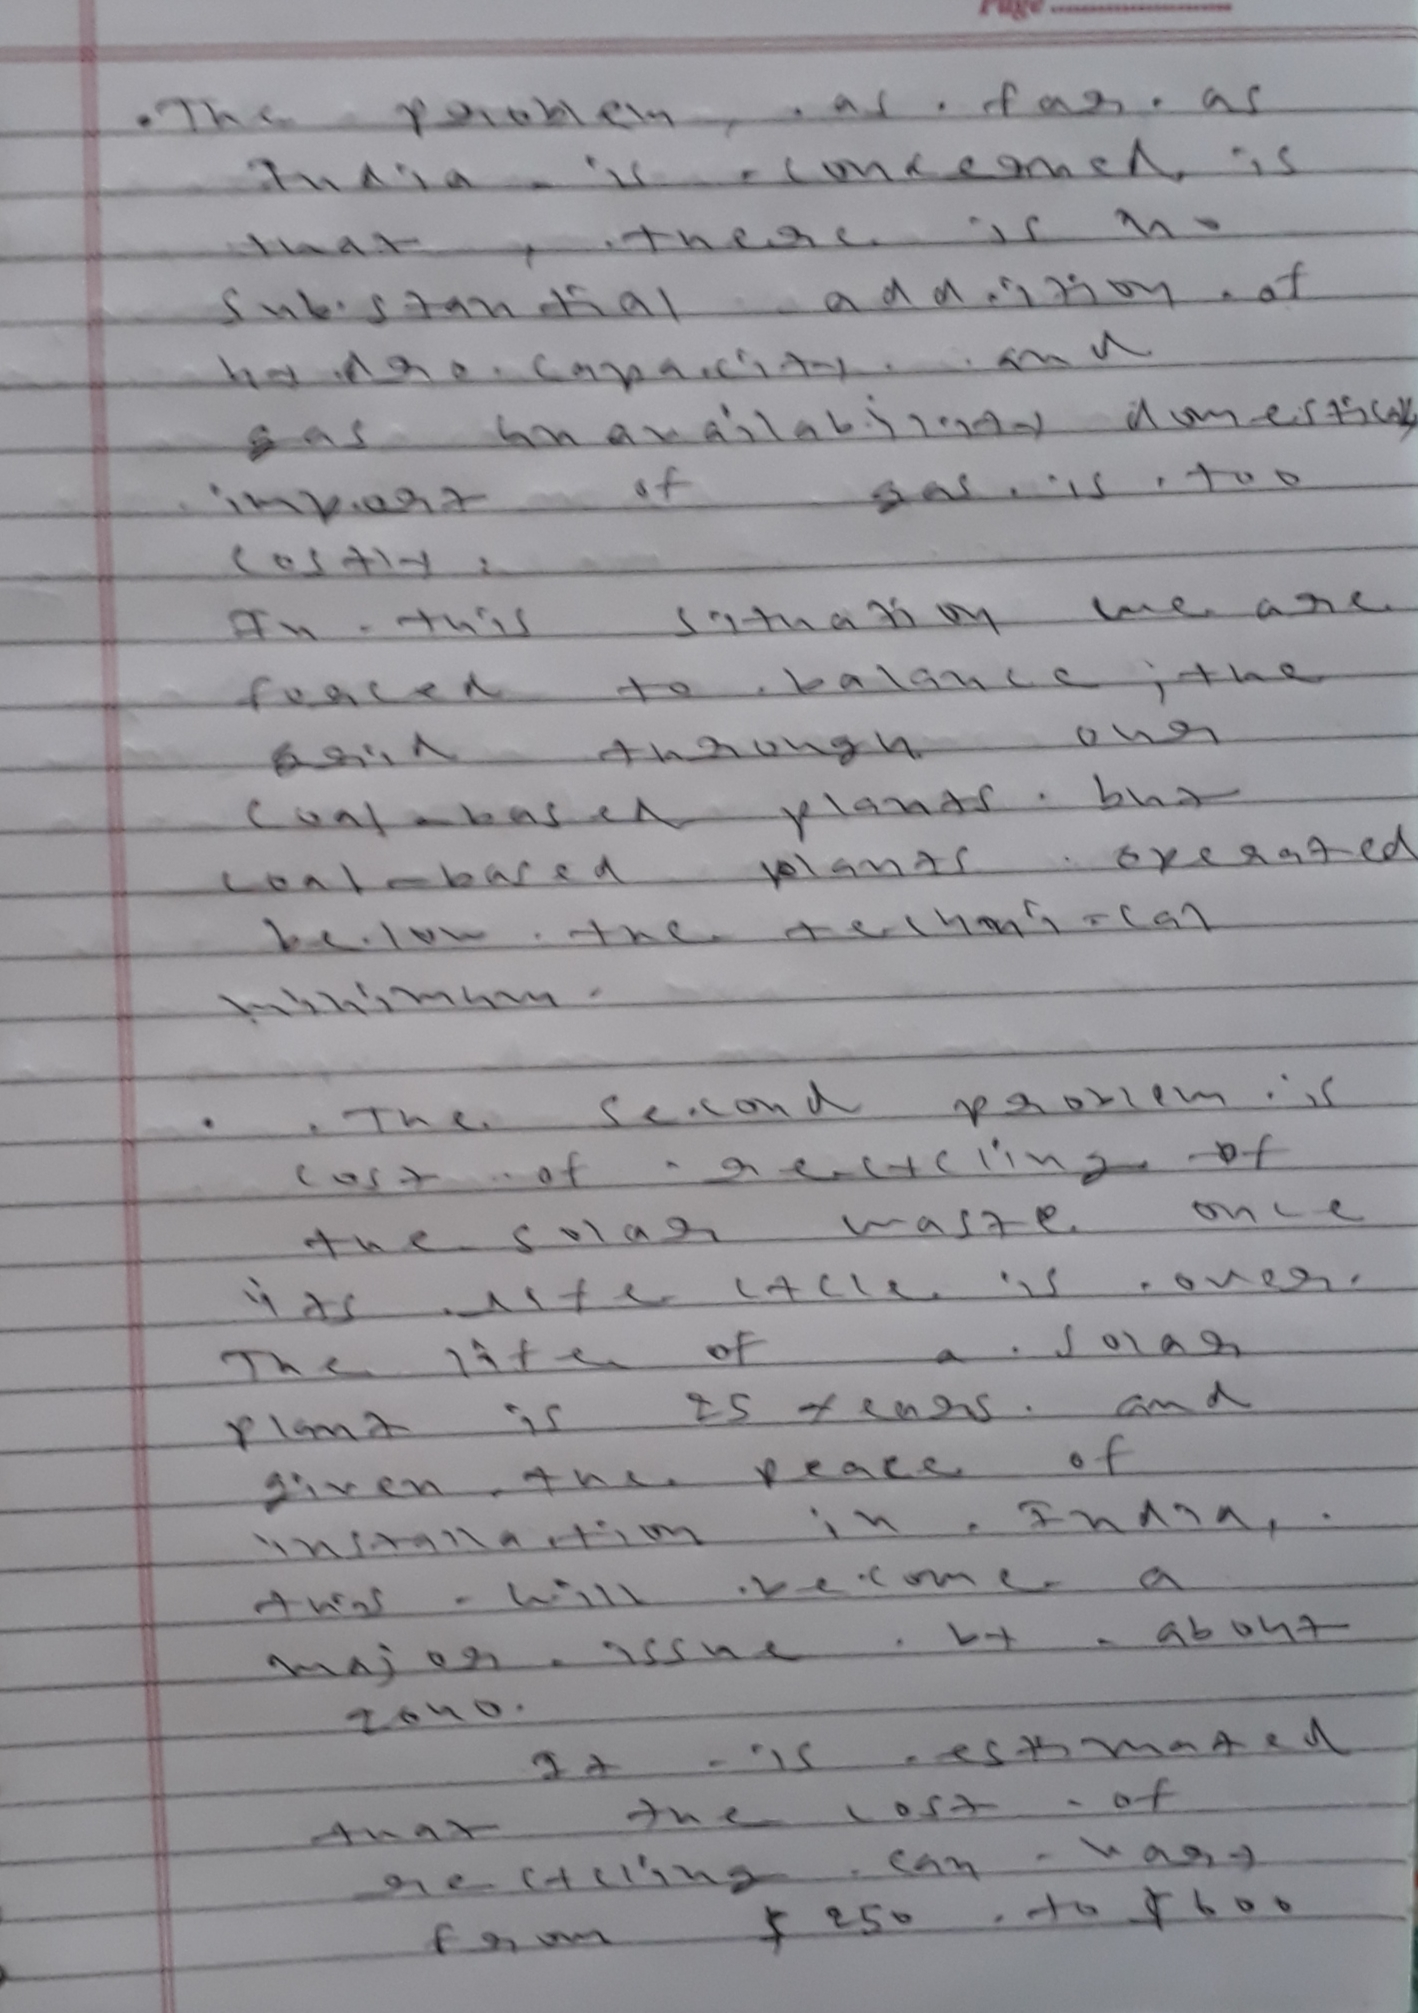 Page
• The problem, as far as
India is concerned, is
that, there is no
substantial addition of
hydro capacity and
gas unavailability domestically
import of gas is too
costly.
In this situation we are
forced to balance the
grid through our
coal-based plants. but
coal-based plants operated
below the technical
minimum.
• The second problem is
cost of recycling of
the solar waste once
its life cycle is over.
The life of a solar
plant is 25 years. and
given the peace of
installation in India,
this will become a
major issue by about
2040.
It is estimated
that the cost of
recycling can vary
from $ 250 to $ 600